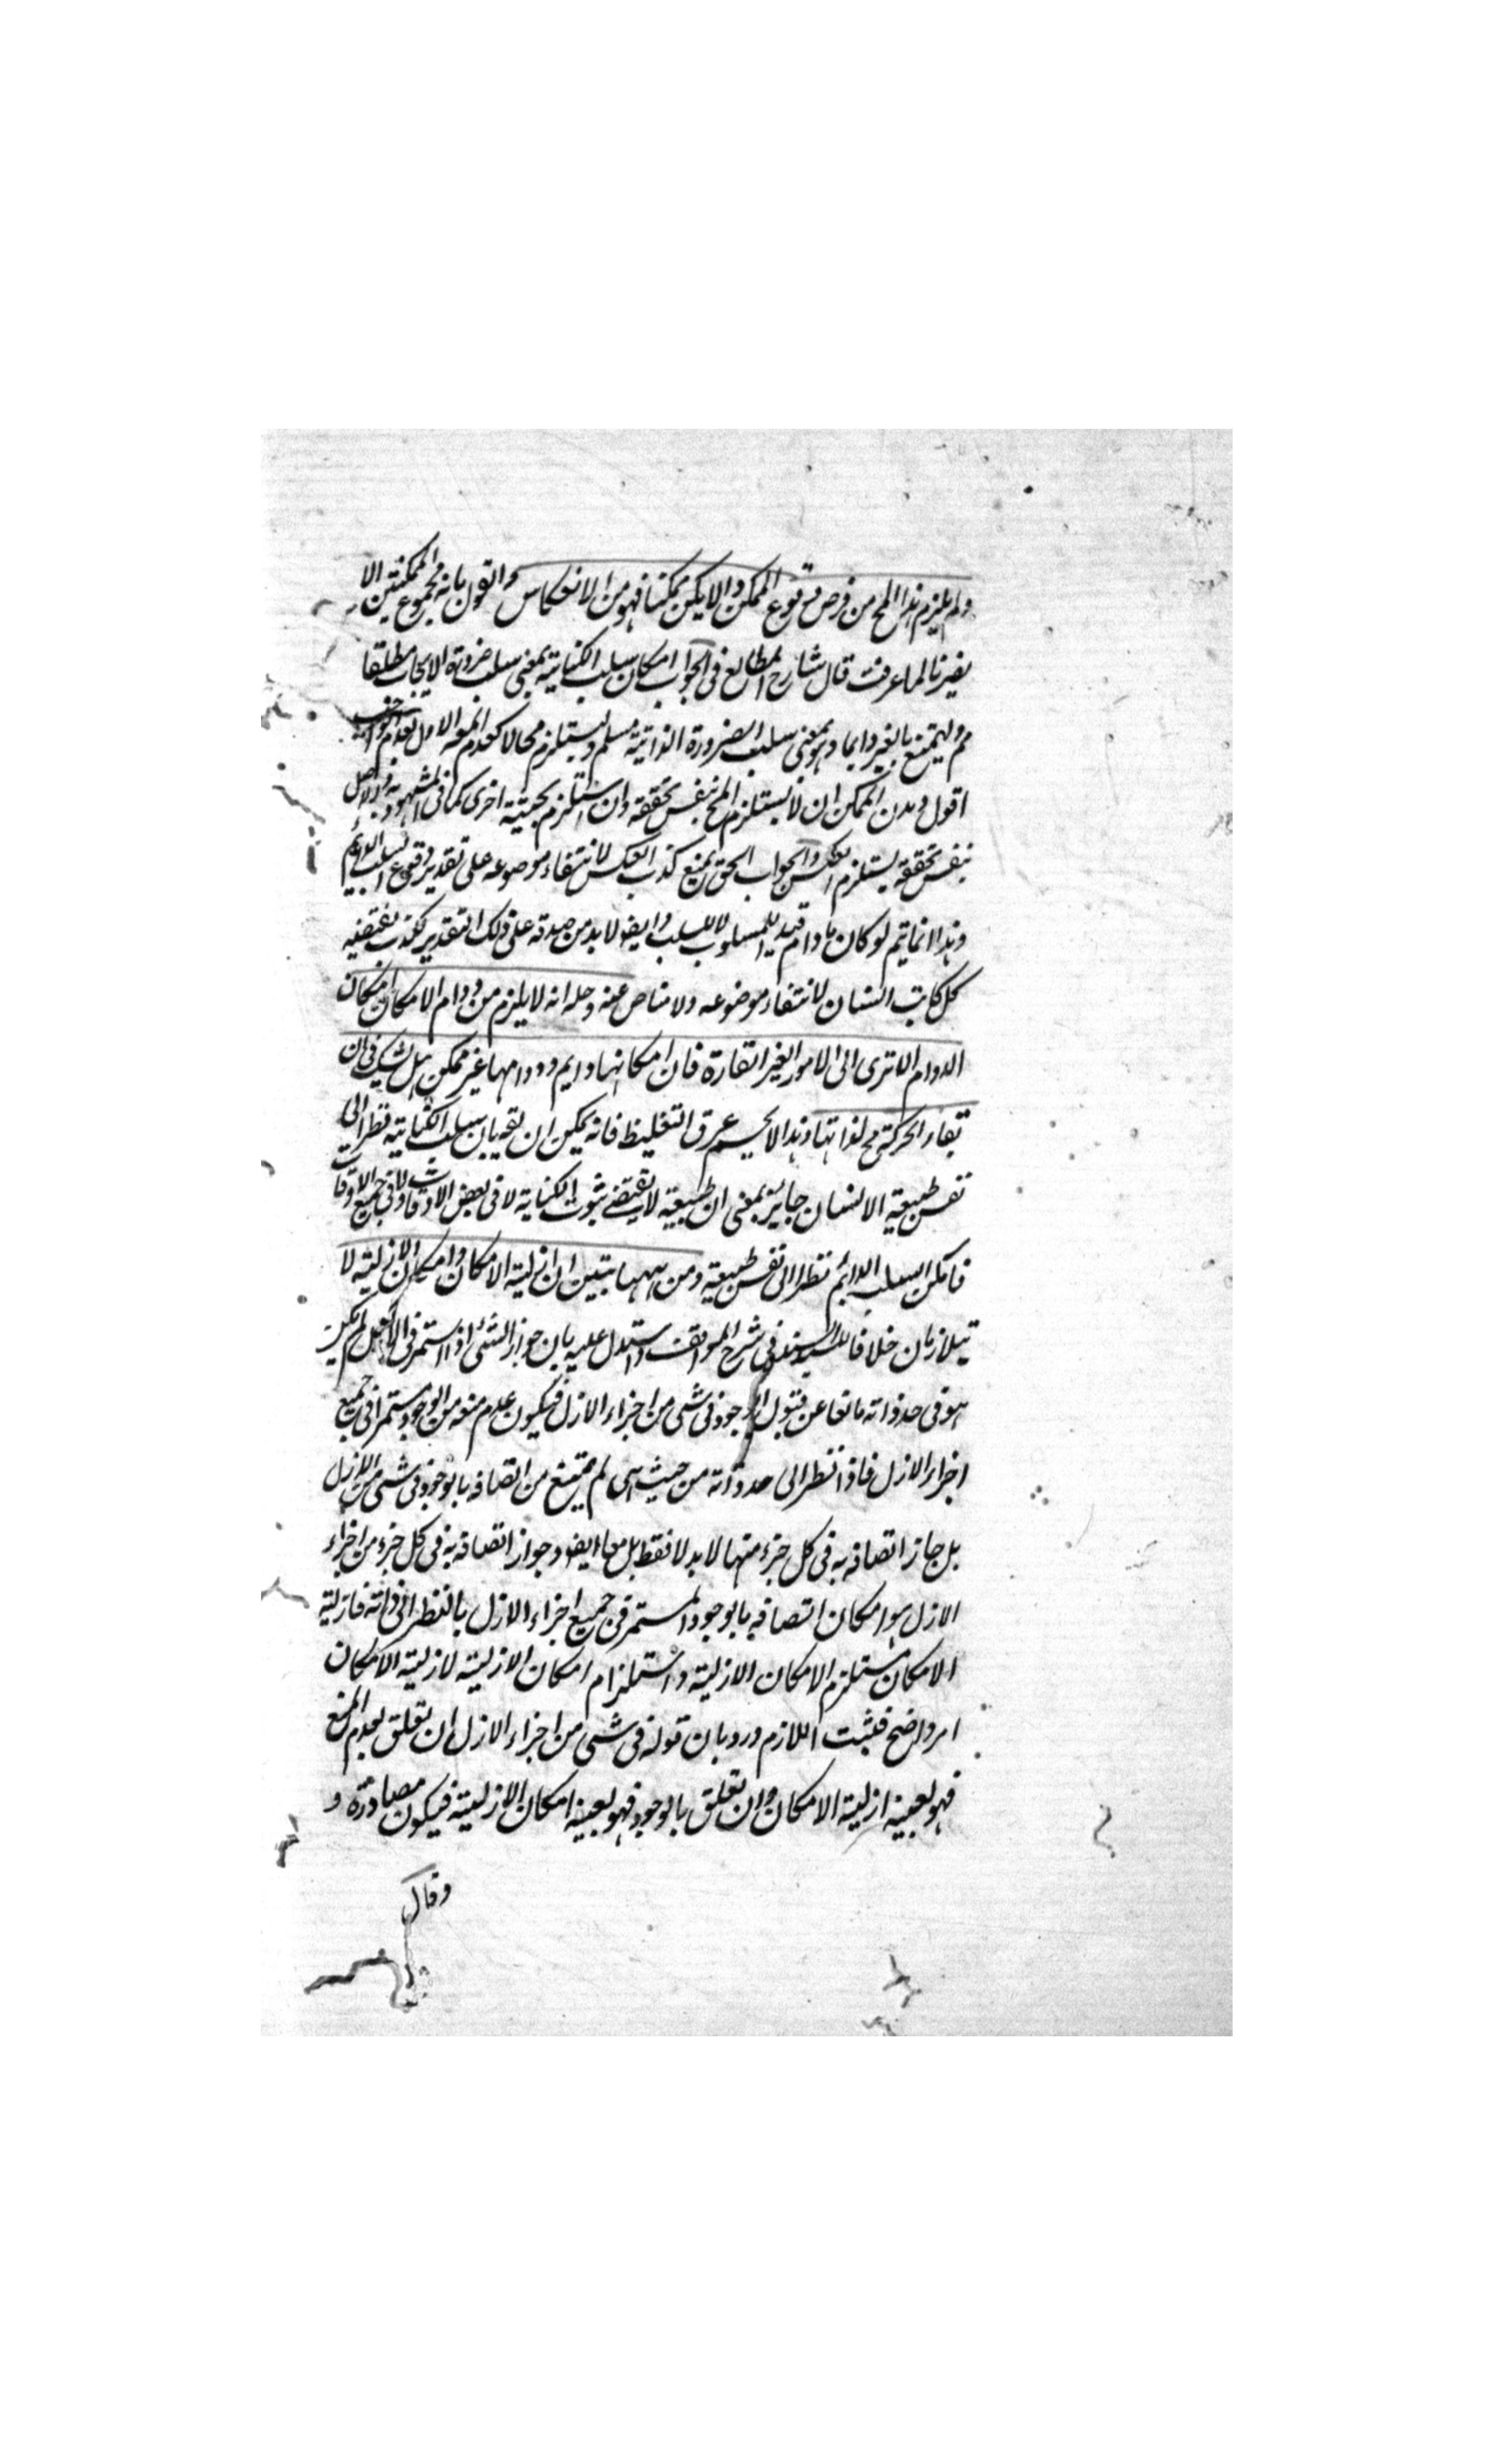 ولم يلزم هذا المح من فرض وقوع الممكن والا لم يكن ممكنا فهو من الانعكاس والقول بانه مجموع الممكنتين الا
يضرنا لما عرفت قال شارح المطالع في الجواب امكان سلب الكتابة بمعنى سلب ضرورة الايجاب مطلقا
مم وليمتنع بالغير دايما وهو بمعنى سلب الضرورة الذاتية مسلم ويستلزم محالا كعدم المعه الاول لعدم الواجب
اقول وبدن الممكن ان لا يستلزم المح بنفس تحققه وان استلزم بحيثية اخرى كما في المشهود به والاصل
بنفس تحققه يستلزم العكس والجواب الحق بمنع كذب العكس لانتفاء موضوعه على تقدير وقوع السلب الدايم
وهذا انما يتم لو كان ما دام قيدا للمسلوب لا للسلب وايضا لا بد من صدقه على ذلك التقدير لكذب نقيضه
كل كاتب انسان لانتفاء موضوعه ولا مناص عنه وحله انه لا يلزم من دوام الامكان امكان
الدوام الا ترى الى الامور الغير القارة فان امكانها دايم ودوامها غير ممكن هل يشك في ان
بقاء الحركة مح لذاتها وهذا لا يحسم عرق التغليظ فانه يمكن ان يقه بان سلب الكتابة نظرا الى
نفس طبيعة الانسان جايز بمعنى ان طبيعية لا يقتضي ثبوت الكتابة لا في بعض الاوقات ولا في جميع الاوقات
فامكن السلب الدايم نظرا الى نفس طبيعية ومن ههنا يتبين ان ازلية الامكان وامكان الازلية لا
يتلازمان خلافا للسيد السند في شرح المواقف واستدل عليه بان جواز الشئ اذا استمر في الازل لم يكن
هو في حد ذاته مانعا عن قبول الوجود في شى من اجزاء الازل فيكون عدم منعه من الوجود مستمرا في جميع
اجزاء الازل فاذا نظر الى حد ذاته من حيث هى لم يمتنع من اتصافه بالوجود في شى من الازل
بل جاز اتصافه به في كل جزء منها لا بدلا فقط بل معا ايضا وجواز اتصافه به في كل جزء من اجزاء
الازل هو امكان اتصافه بالوجود المستمر في جميع اجزاء الازل بالنظر الى ذاته فازلية
الامكان مستلزم الامكان الازلية واستلزام امكان الازلية لازلية الامكان
امر واضح فثبت اللازم ورد بان قوله في شى من اجزاء الازل ان تعلق بعدم المنع
فهو بعينه ازلية الامكان وان تعلق بالوجود فهو بعينه امكان الازلية فيكون مصادرة و
وقال